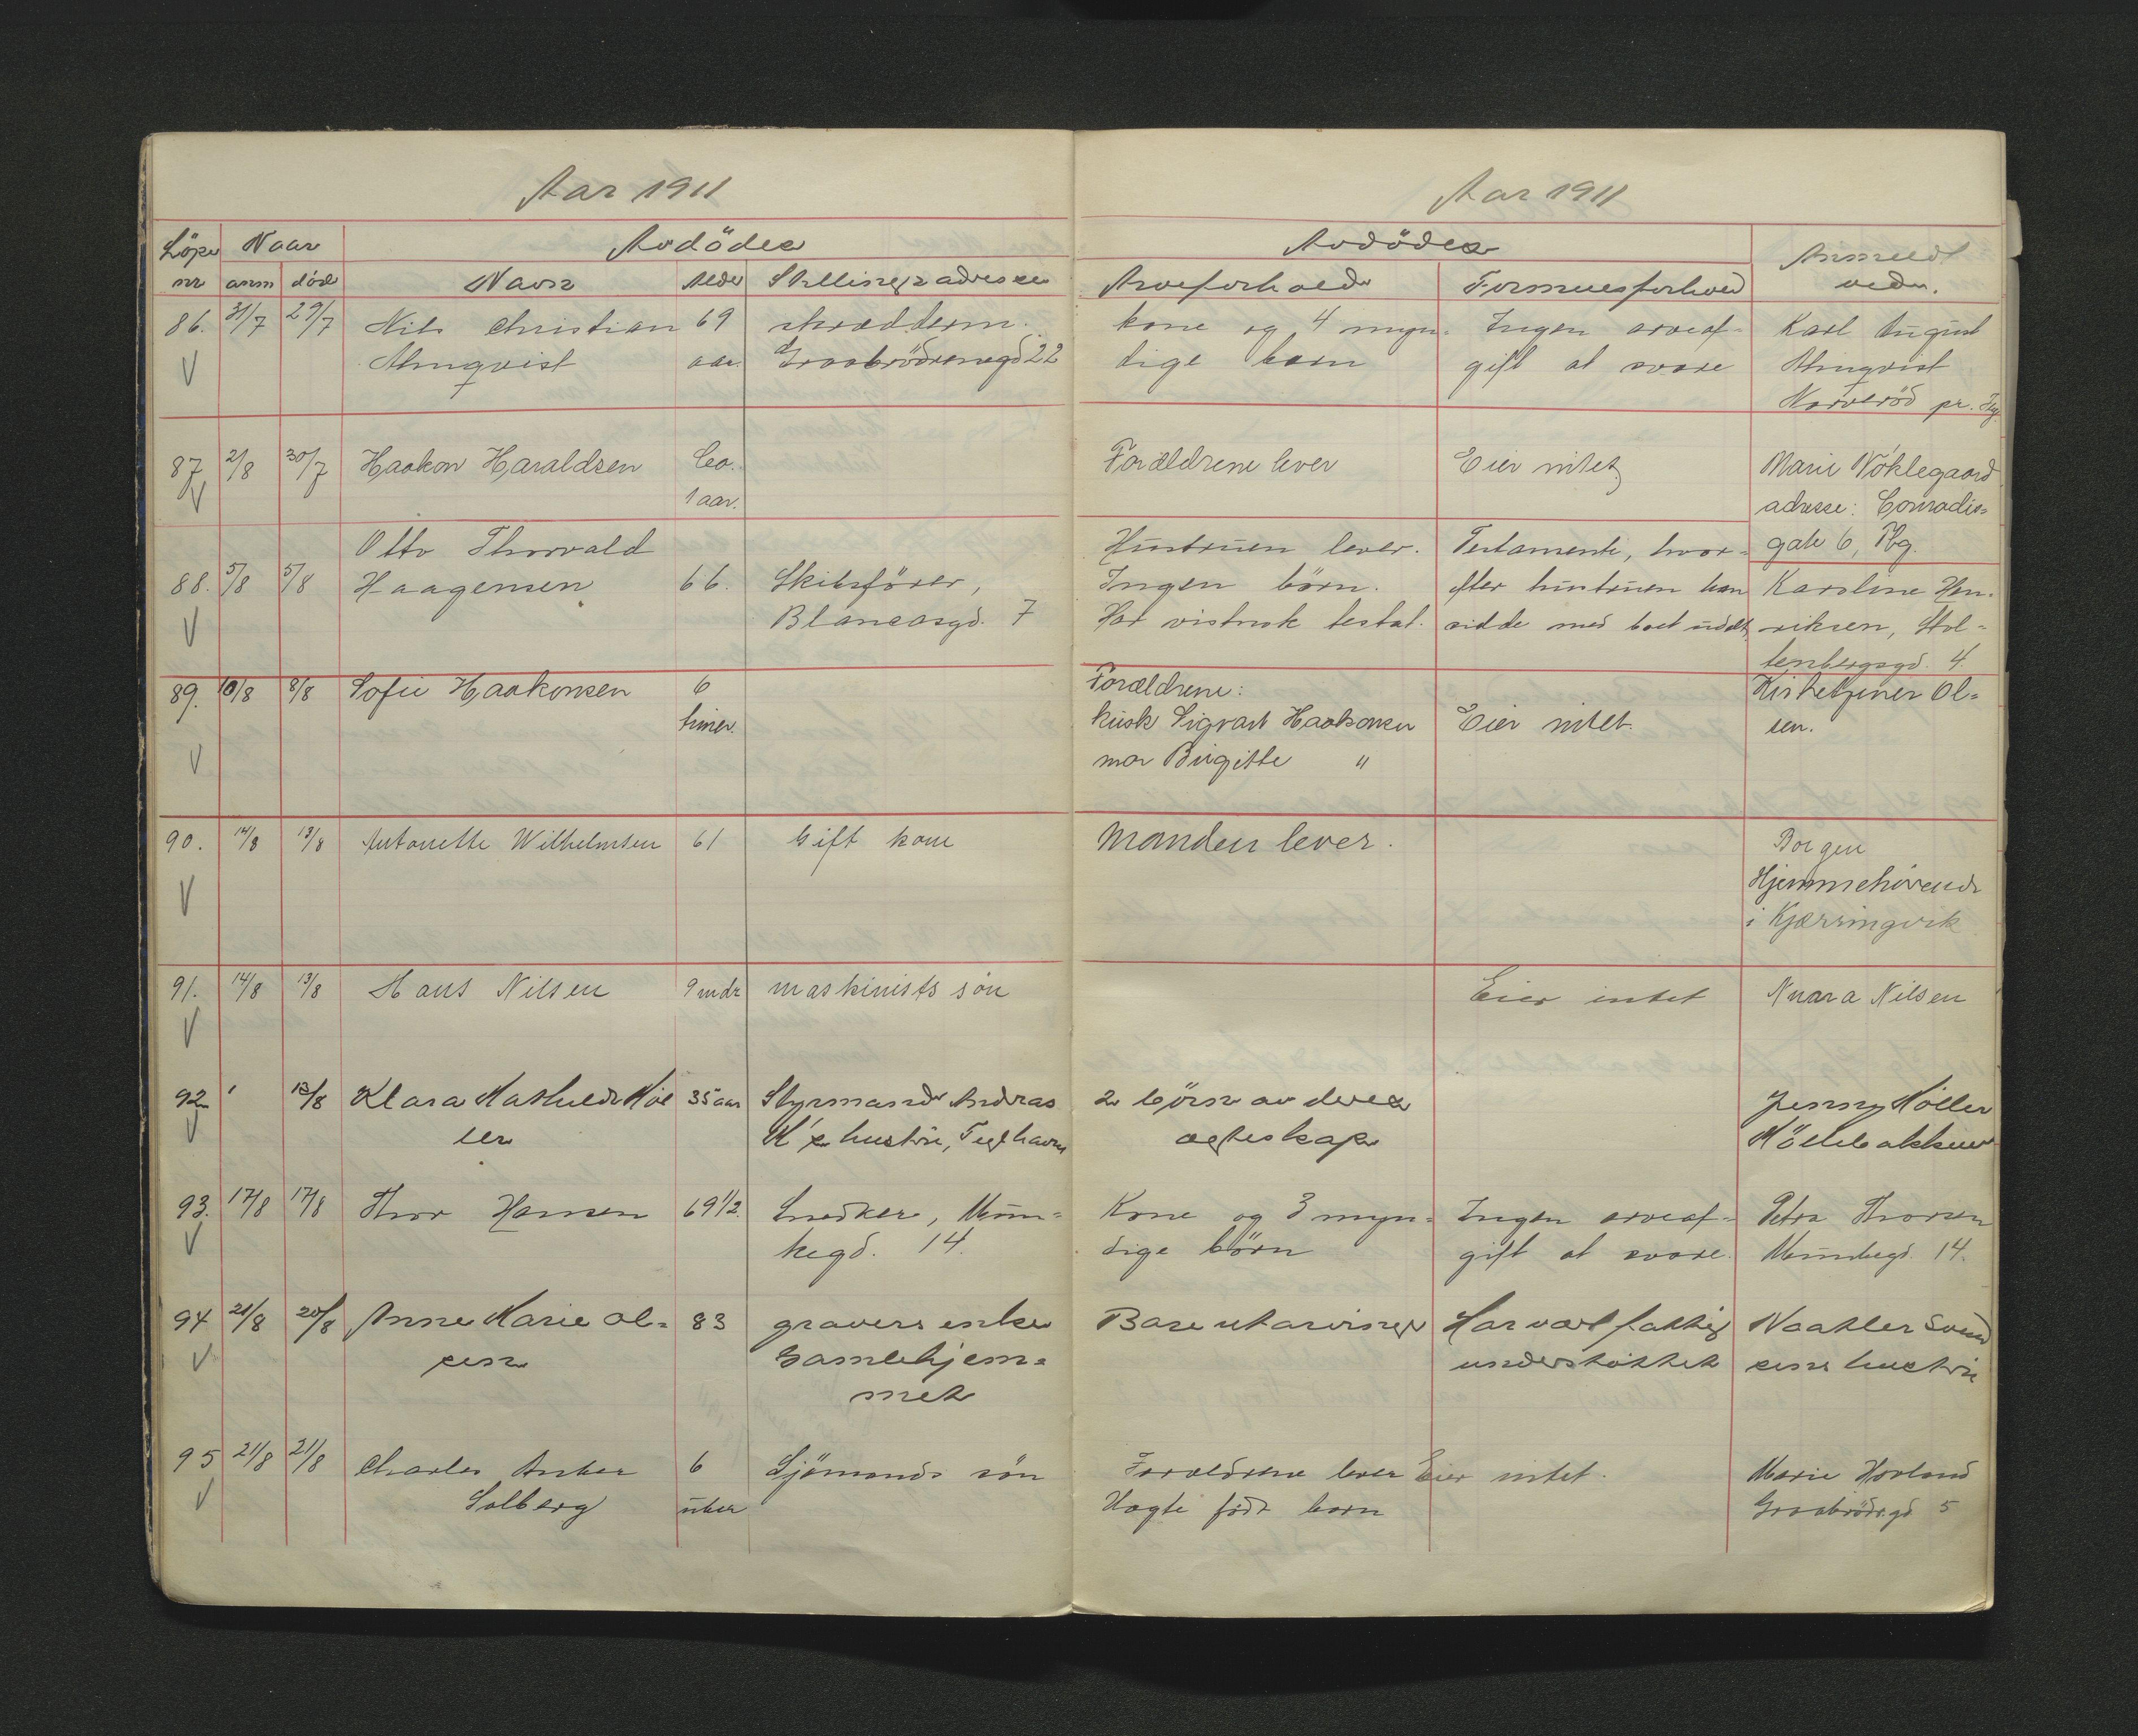 Aar 1911
Löpe Naar Avdödes
nr anm död Navn Alder Stilling, adresse
86. 31/7 29/7 Nils Christian 69 skrædderm.
Almqvist aar. Graabrödrenegd 22
87 2/8 30/7 Haakon Haraldsen Ca.
1 aar.
Otto Thorvald
88. 5/8 5/8 Haagensen 66. Skibsförer,
Blancasgd. 7
89. 10/8 8/8 Sofie Haakonsen 6
timer.
90. 14/8 13/8 Antonette Wilhelmsen 61 Gift kone
91. 14/8 13/8 Hans Nilsen 9 mdr maskinists sön
92 13/8 Klara Mathilde Möl 35 aar Styrmand Andreas
ler M's hustru, Teglhavn
93. 17/8 17/8 Thor Hansen 69 1/2 Snedker, Mun=
kegd. 14.
94 21/8 20/8 Anne Marie Ol= 83 gravers enke
sen Gamlehjem=
met
95 21/8 21/8 Charles Anker 6 Sjömands sön
Solberg uker
Aar 1911
Avdödes Anmeldt
Arveforhold Formuesforhold ved.
kone og 4 myn= Ingen arveaf= Karl August
dige barn gift at svare Almqvist
Norveröd pr. Tbg.
Forældrene lever Eier intet Marie Nöklegaard
adresse: Conradis=
Hustruen lever. Testamente, hvor= gate 6, Tbg.
Ingen börn. efter hustruen kan Karoline Hen=
Har vistnok testat. sidde med boet uddelt riksen, Stol=
tenbergsgd. 4.
Forældrene: Kirketjener Ol=
kusk Sigvart Haakonsen Eier intet. sen.
mor Birgitte "
Manden lever. Borgen
Hjemmehörende
i Kjærringvik
Eier intet Nnara Nilsen
2 börn av deres Jenny Möller
ægteskap Möllebakken
Kone og 3 myn= Ingen arveaf= Petra Thorsen
dige börn gift at svare. Munkegd. 14.
Bare utarvinger Har vært fattig Naatler Svend
understöttet sens hustru
Forældrene lever Eier intet. Marie Hovland
Uægte födt barn Graabrödr.gd 5